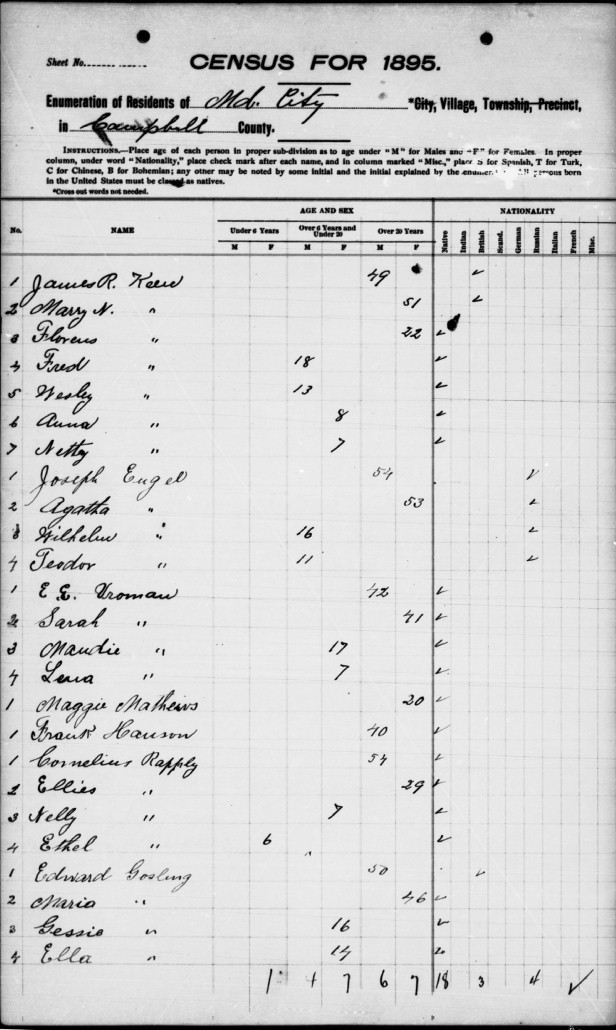 Sheet No.
CENSUS FOR 1895.
Enumeration of Residents of Md. City *City, Village, Township, Precinct,
in Campbell County.
INSTRUCTIONS.—Place age of each person in proper sub-division as to age under "M" for Males and "F" for Females. In proper
column, under word "Nationality," place check mark after each name, and in column marked "Misc.," place S for Spanish, T for Turk,
C for Chinese, B for Bohemian; any other may be noted by some initial and the initial explained by the All persons born
in the United States must be classed as natives.
*Cross out words not needed.
AGE AND SEX NATIONALITY
No. NAME Under 6 Years Over 6 Years and Under 20 Over 20 Years Native Indian British Scand. German Russian Italian French Misc.
M F M F M F
1 James R. 49 ✓
2 Marry N. " 51 ✓
3 Florens " 22 ✓
4 Fred " 18 ✓
5 Wesley " 13 ✓
6 Anna " 8 ✓
7 Netty " 7 ✓
1 Joseph Engel 54 ✓
2 Agatha " 53 ✓
3 Wilhelm " 16 ✓
4 Teodor " 11 ✓
1 E E. Vroman 42 ✓
2 Sarah " 41 ✓
3 Maudie " 17 ✓
4 Lena " 7 ✓
1 Maggie Mathews 20 ✓
1 Frank Hanson 40 ✓
1 Cornelius Rapply 54 ✓
2 Ellies " 29 ✓
3 Nelly " 7 ✓
4 Ethel " 6 ✓
1 Edward Gosling 50 ✓
2 Maria " 46 ✓
3 Gessie " 16 ✓
4 Ella " 14 ✓
1 4 7 6 7 18 3 4 ✓